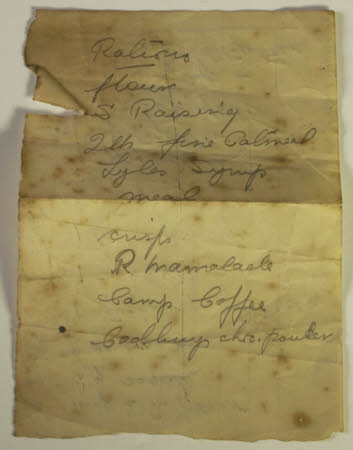 Rations
flour
S Raising
2 lb fine Oatmeal
Lyles Syrup
meal
crisp
R Marmalade
Camp Coffee
Cadburys choc. powder